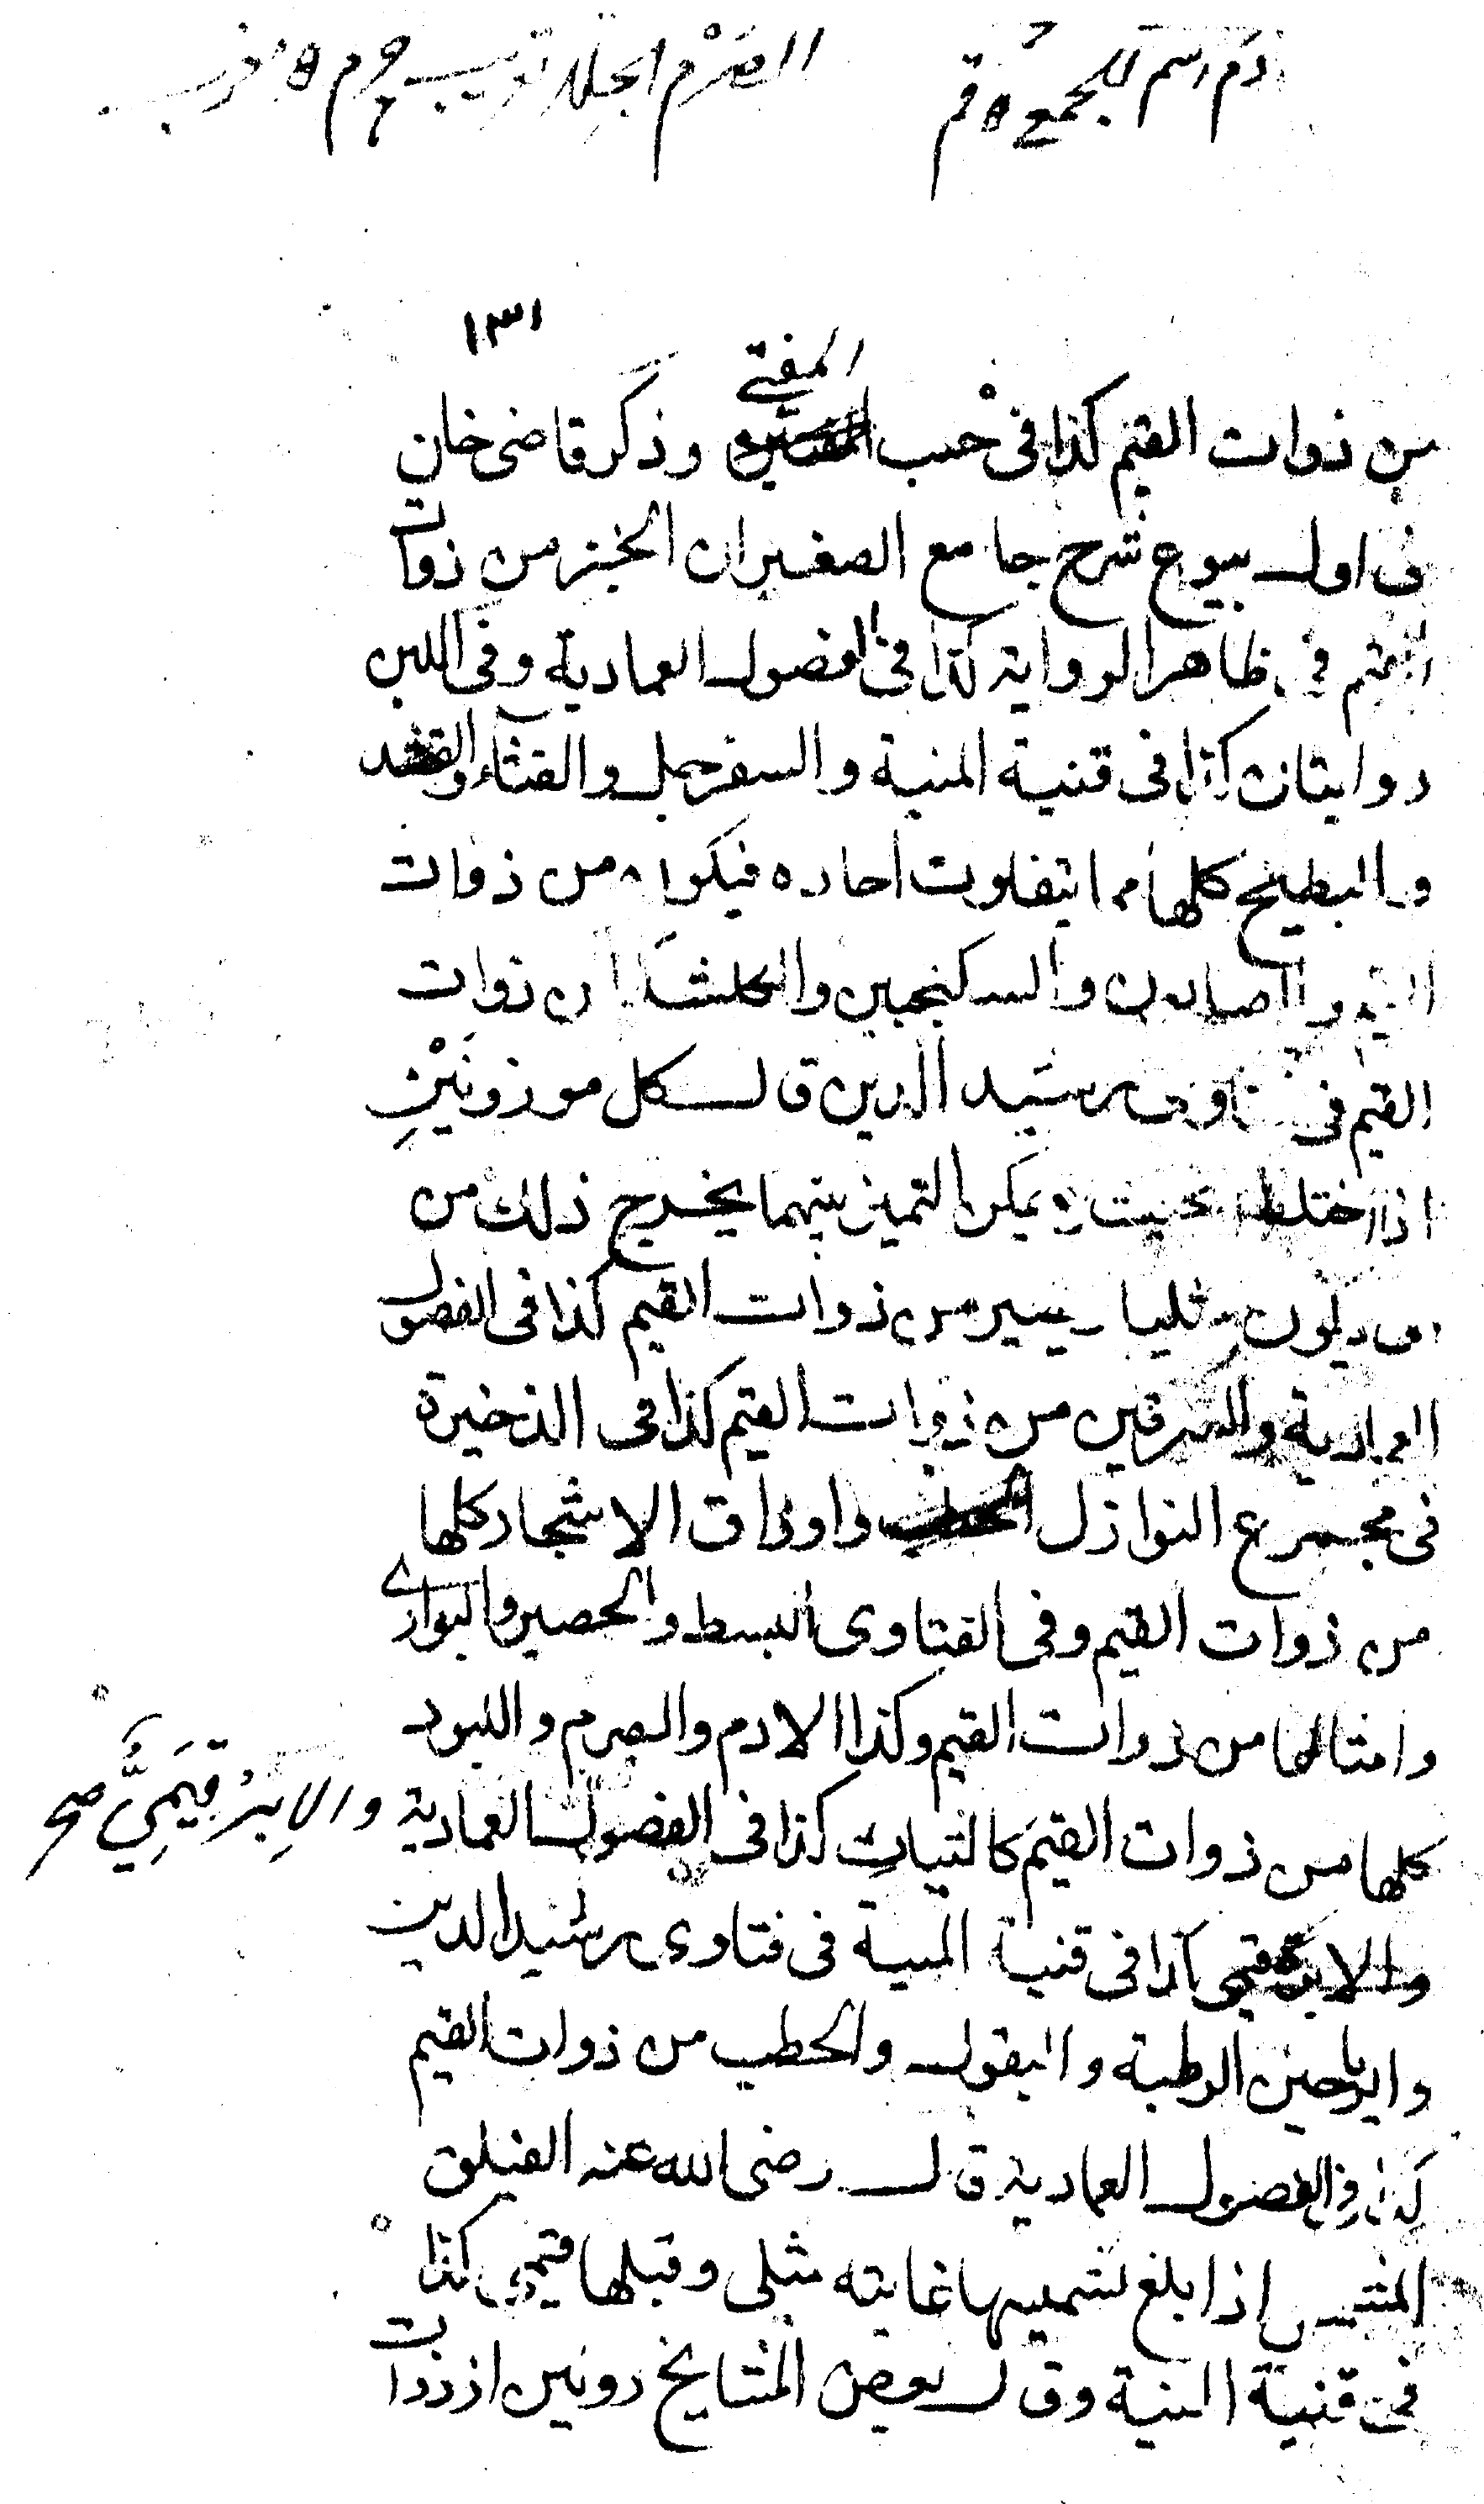 ادم اسم للجمع ۵ ق م
الصرم الجلد تعريب چرم ۵ مغرب
١٣١
المفتى
من ذوات القيم كذا فى حسب وذكر قاضى خان
فى اول بيوع شرح جامع الصغير ان الخبز من ذوات
القيم فى ظاهر الرواية كذا فى الفصول العمادية وفى اللبن
روايتان كذا فى قنية المنية والسفرجل والقثاء والقثد
والبطيخ كلها مما يتفاوت احاده فيكون من ذوات
القيم والصابون والسكنجبين والجلنشكر من ذوات
القيم فى فتاوى رشيد الدين قال كل موزونَيْنِ
اذا اختلطا بحيث لا يمكن التميز بينهما يخرج ذلك من
ان يكون مثليا يصير من ذوات القيم كذا فى الفصول
العمادية والسرقين من ذوات القيم كذا فى الذخيرة
فى مجموع النوازل الحطب واوراق الاشجار كلها
من ذوات القيم وفى الفتاوى البسط والحصير والبوارى
وامثالها من ذوات القيم وكذا الادم والصرم واللبود
كلها من ذوات القيم كالثياب كذا فى الفصول العمادية
والاِبَرُ قيَمِيٌّ صح
والابرة قيمى كذا فى قنية المنية فى فتاوى رشيد الدين
والرياحين الرطبة والبقول والحطب من ذوات القيم
كذا فى الفصول العمادية قال رضى الله عنه الفيلق
المشمس اذا بلغ تشميسها غايته مثلى وقبلها قيمى كذا
فى قنية المنية وقال بعض المشايخ رونين از ذوات